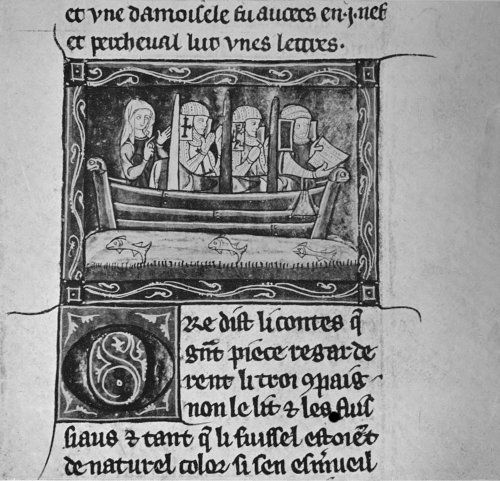 et vne damoisele fu auoecs en .j. nef
et percheual lut vnes lettres.
Ore dist li contes q̃
gñt piece regarde
rent li troi ꝯpaig
non le lit ⁊ les fuis
siaus ⁊ tant q̃ li fuissel estoiẽt
de naturel color si sen esm̃ueil